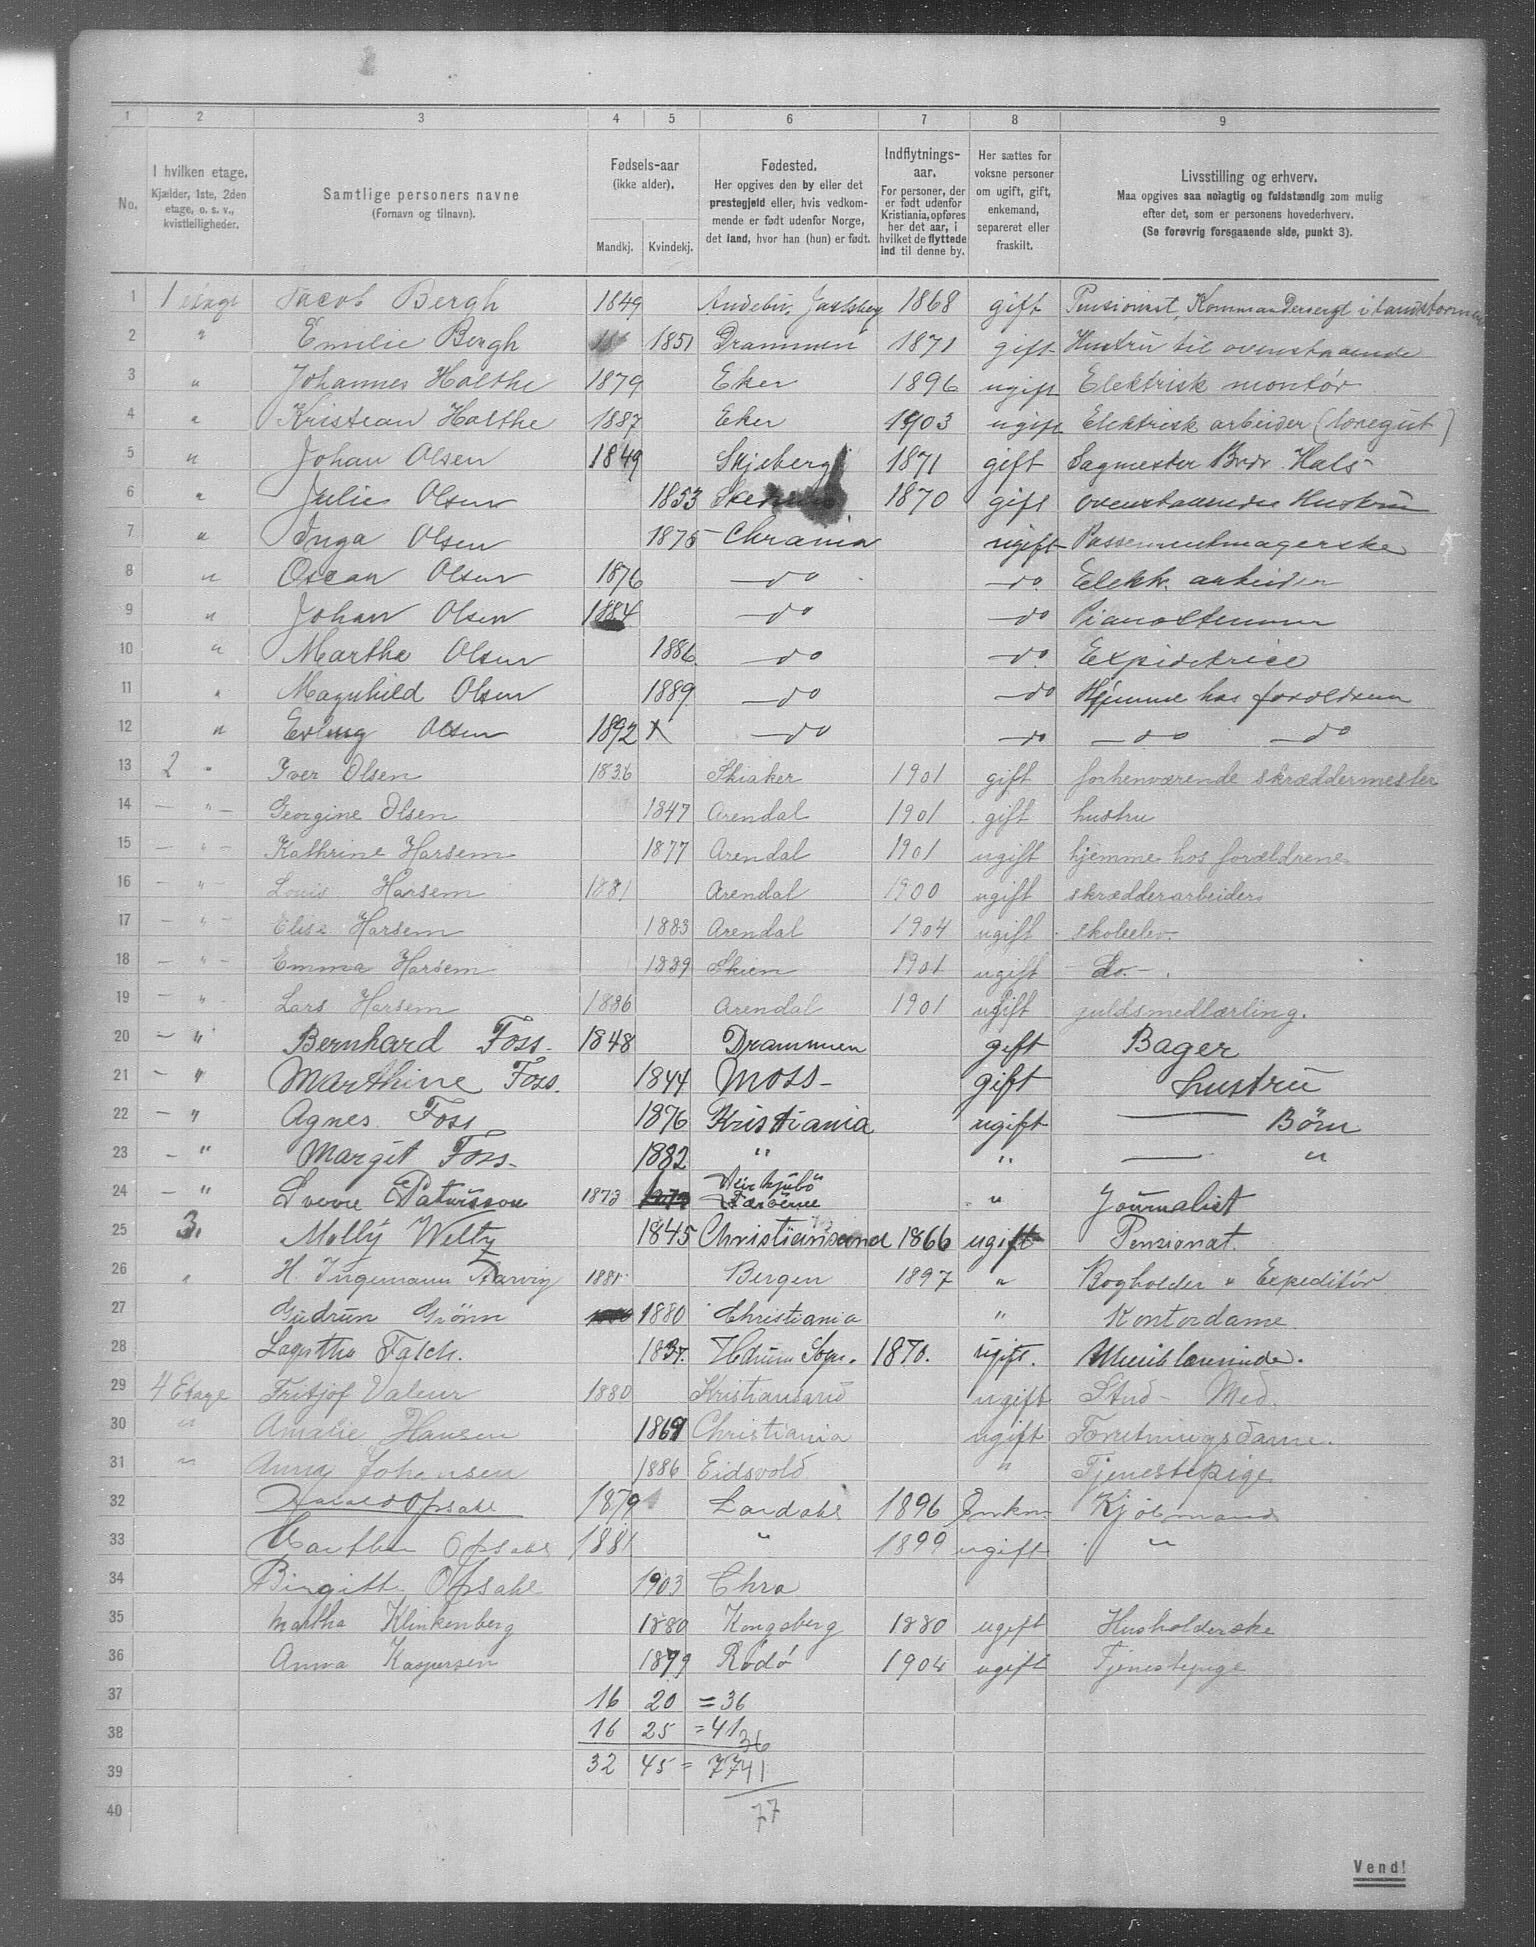 1 2 3 4 5 6 7 8 9
No. I hvilken etage. Kjælder, 1ste, 2den etage, o. s. v., kvistleiligheder. Samtlige personers navne (Fornavn og tilnavn). Fødsels-aar (ikke alder). Mandkj. Kvindekj. Fødested. Her opgives den by eller det prestegjeld eller, hvis vedkommende er født udenfor Norge, det land, hvor han (hun) er født. Indflytnings-aar. For personer, der er født udenfor Kristiania, opføres her det aar, i hvilket de flyttede ind til denne by. Her sættes for voksne personer om ugift, gift, enkemand, separeret eller fraskilt. Livsstilling og erhverv. Maa opgives saa nøiagtig og fuldstændig som mulig efter det, som er personens hovederhverv. (Se forøvrig forsgaaende side, punkt 3).
1 1 etage Jacob Bergh 1849 Andebu, Jarlsberg 1868 gift Pensionist, Kommandersergt i landstormen
2 " Emilie Bergh 1851 Drammen 1871 gift Hustru til ovenstaaende
3 " Johannes Holthe 1879 Eker 1896 ugift Elektrisk montør
4 " Kristian Holthe 1887 Eker 1903 ugift Elektrisk arbeider (læregut)
5 " Johan Olsen 1849 Skjeberg 1871 gift Sagmester Brdr. Hals
6 " Julie Olsen 1853 1870 gift ovenstaaendes Hustru
7 " Inga Olsen 1875 Chrania ugift Possementmagerske
8 " Oscar Olsen 1876 do do Elektr. arbeider
9 " Johan Olsen 1884 do do Pianostemmer
10 " Marthe Olsen 1886 do do Expiditrice
11 " Magnhild Olsen 1889 do do Hjemme hos foreldrene
12 " Erling Olsen 1892 x do do do do
13 2 " Iver Olsen 1836 Skiaker 1901 gift forhenværende skræddermester
14 — " — Georgine Olsen 1847 Arendal 1901 gift hustru
15 — " — Kathrine Harsem 1877 Arendal 1901 ugift hjemme hos forældrene
16 — " — Louis Harsem 1881 Arendal 1900 ugift skrædderarbeider
17 — " — Elise Harsem 1883 Arendal 1904 ugift skoleelev
18 — " — Emma Harsem 1889 Skien 1901 ugift Do.
19 — " — Lars Harsem 1886 Arendal 1901 ugift guldsmedlærling.
20 — " Bernhard Foss 1848 Drammen gift Bager
21 — " Marthine Foss. 1844 Moss gift hustru
22 — " Agnes Foss 1876 Kristiania ugift — Børn
23 — " Margit Foss 1882 " " — "
24 — " Sverre E Patursson 1873 Kirkjubö Færöerne " Journalist
25 3. Molly Welty 1845 Christiansund 1866 ugift Pensionat.
26 " H. Ingemann Farvig 1881 Bergen 1897 " Bogholder & Expeditör
27 Gudrun Grönn 1880 Christiania " Kontordame
28 Lagertha Falch. 1837. Hedrum Sogn. 1870. ugift. Musiklærerinde.
29 4 Etage Fritjof Valeur 1880 Kristiansand ugift Stud Med.
30 " Amalie Hansen 1869 Christiania ugift Forretningsdame.
31 " Anna Johansen 1886 Eidsvold " Tjenestepige
32 Harald Opsahl 1879 Lardahl 1896 Enkm. Kjøbmand
33 Opsahl 1881 " 1899 ugift "
34 Birgitt Opsahl 1903 Chra
35 Martha Klinkenberg 1880 Kongsberg 1880 ugift Husholderske
36 Anna Kaspersen 1879 Rödö 1904 ugift Tjenestepige
37 16 20 = 36
38 16 25 = 41 36
39 32 45 = 77 41
40 77
Vend!